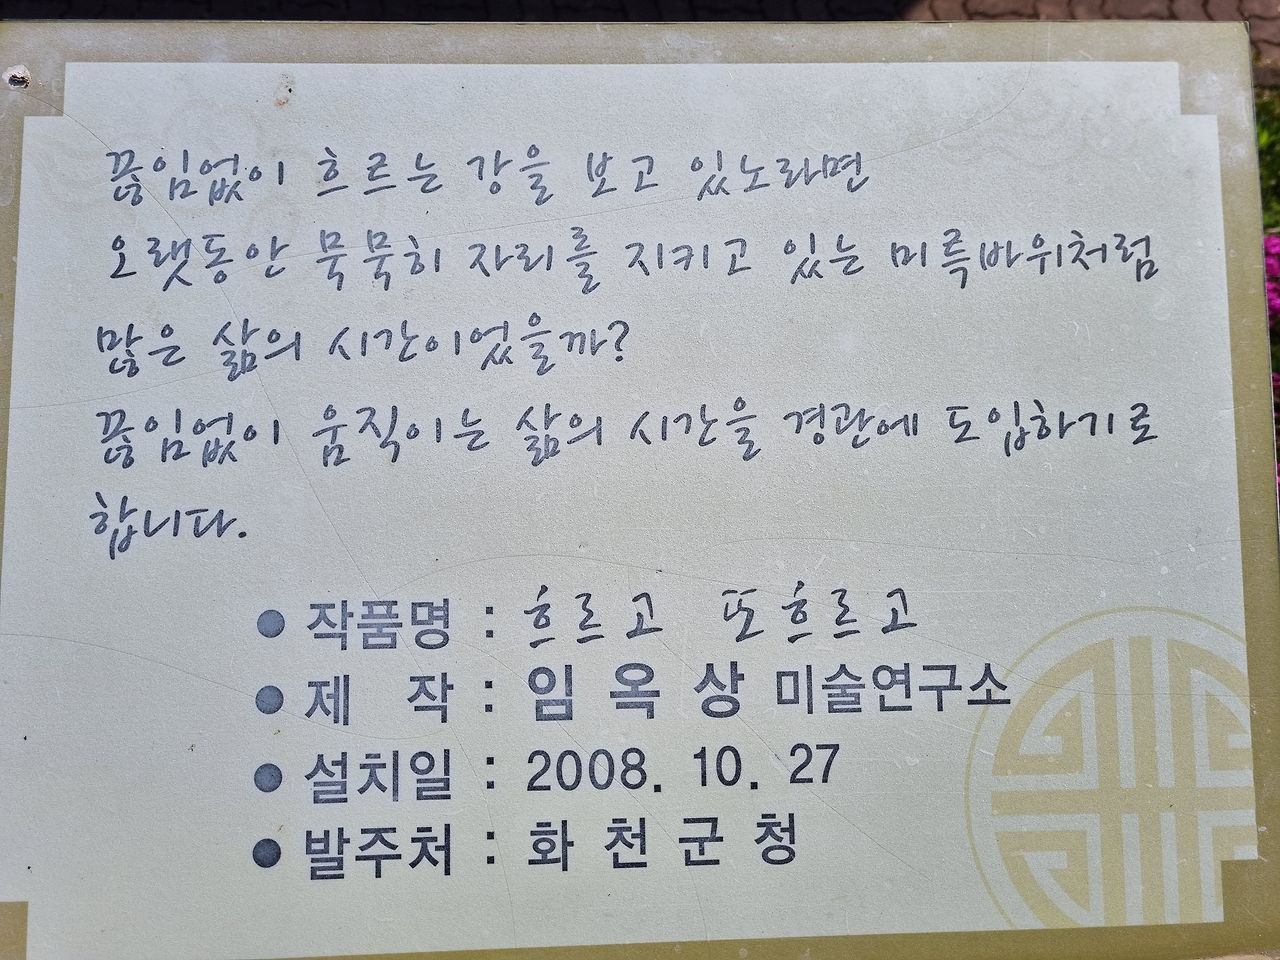 끊임없이 흐르는 강을 보고 있노라면
오랫동안 묵묵히 자리를 지키고 있는 미륵바위처럼
많은 삶의 시간이었을까?
끊임없이 움직이는 삶의 시간을 경관에 도입하기로
합니다.
● 작품명 : 흐르고 또흐르고
● 제 작 : 임 옥 상 미술연구소
● 설치일 : 2008. 10. 27
● 발주처 : 화 천 군 청